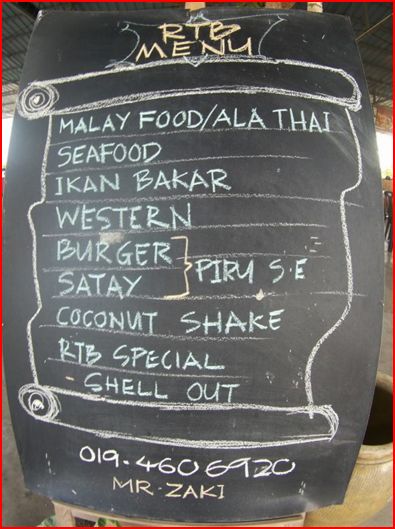 RTB
MENU
MALAY FOOD/ALA THAI
SEAFOOD
IKAN BAKAR
WESTERN
BURGER
SATAY
PIRU S.E
COCONUT SHAKE
RTB SPECIAL
- SHELL OUT
019-460 6920
MR. ZAKI